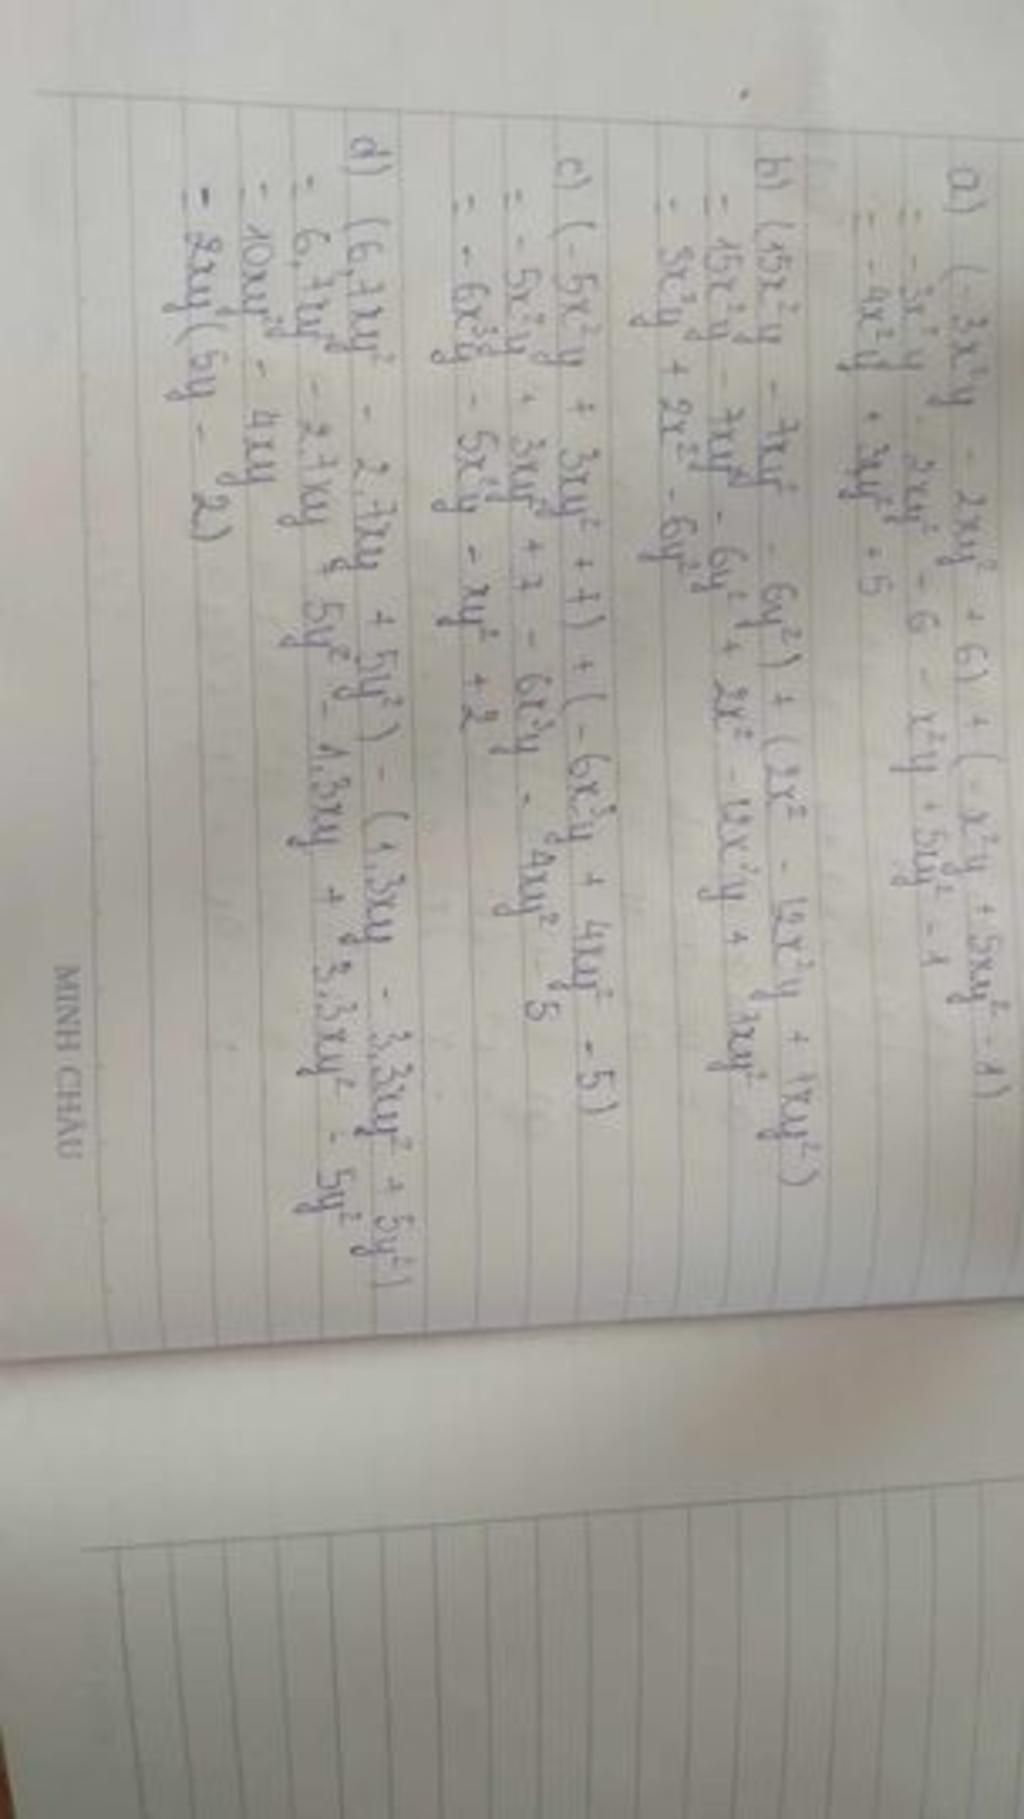 a) (-3x²y - 2xy² + 6) + (-x²y + 5xy² - 1)
= -3x²y - 2xy² - 6 - x²y + 5xy² - 1
= -4x²y + 3xy² + 5
b) (15x²y - 7xy² - 6y²) + (2x² - 12x²y + 7xy²)
= 15x²y - 7xy² - 6y² + 2x² - 12x²y + 7xy²
= 3x²y + 2x² - 6y²
c) (-5x²y + 3xy² + 7) + (-6x²y + 4xy² - 5)
= -5x²y + 3xy² + 7 - 6x²y - 4xy² 5
= -6x²y - 5x²y - xy² + 2
d) (6,7xy² - 2,7xy + 5y²) - (1,3xy - 3,3xy² + 5y²)
= 6,7xy² - 2,7xy + 5y² - 1,3xy + 3,3xy² - 5y²
= 10xy² - 4xy
= 2xy(5y - 2)
MINH CHÂU